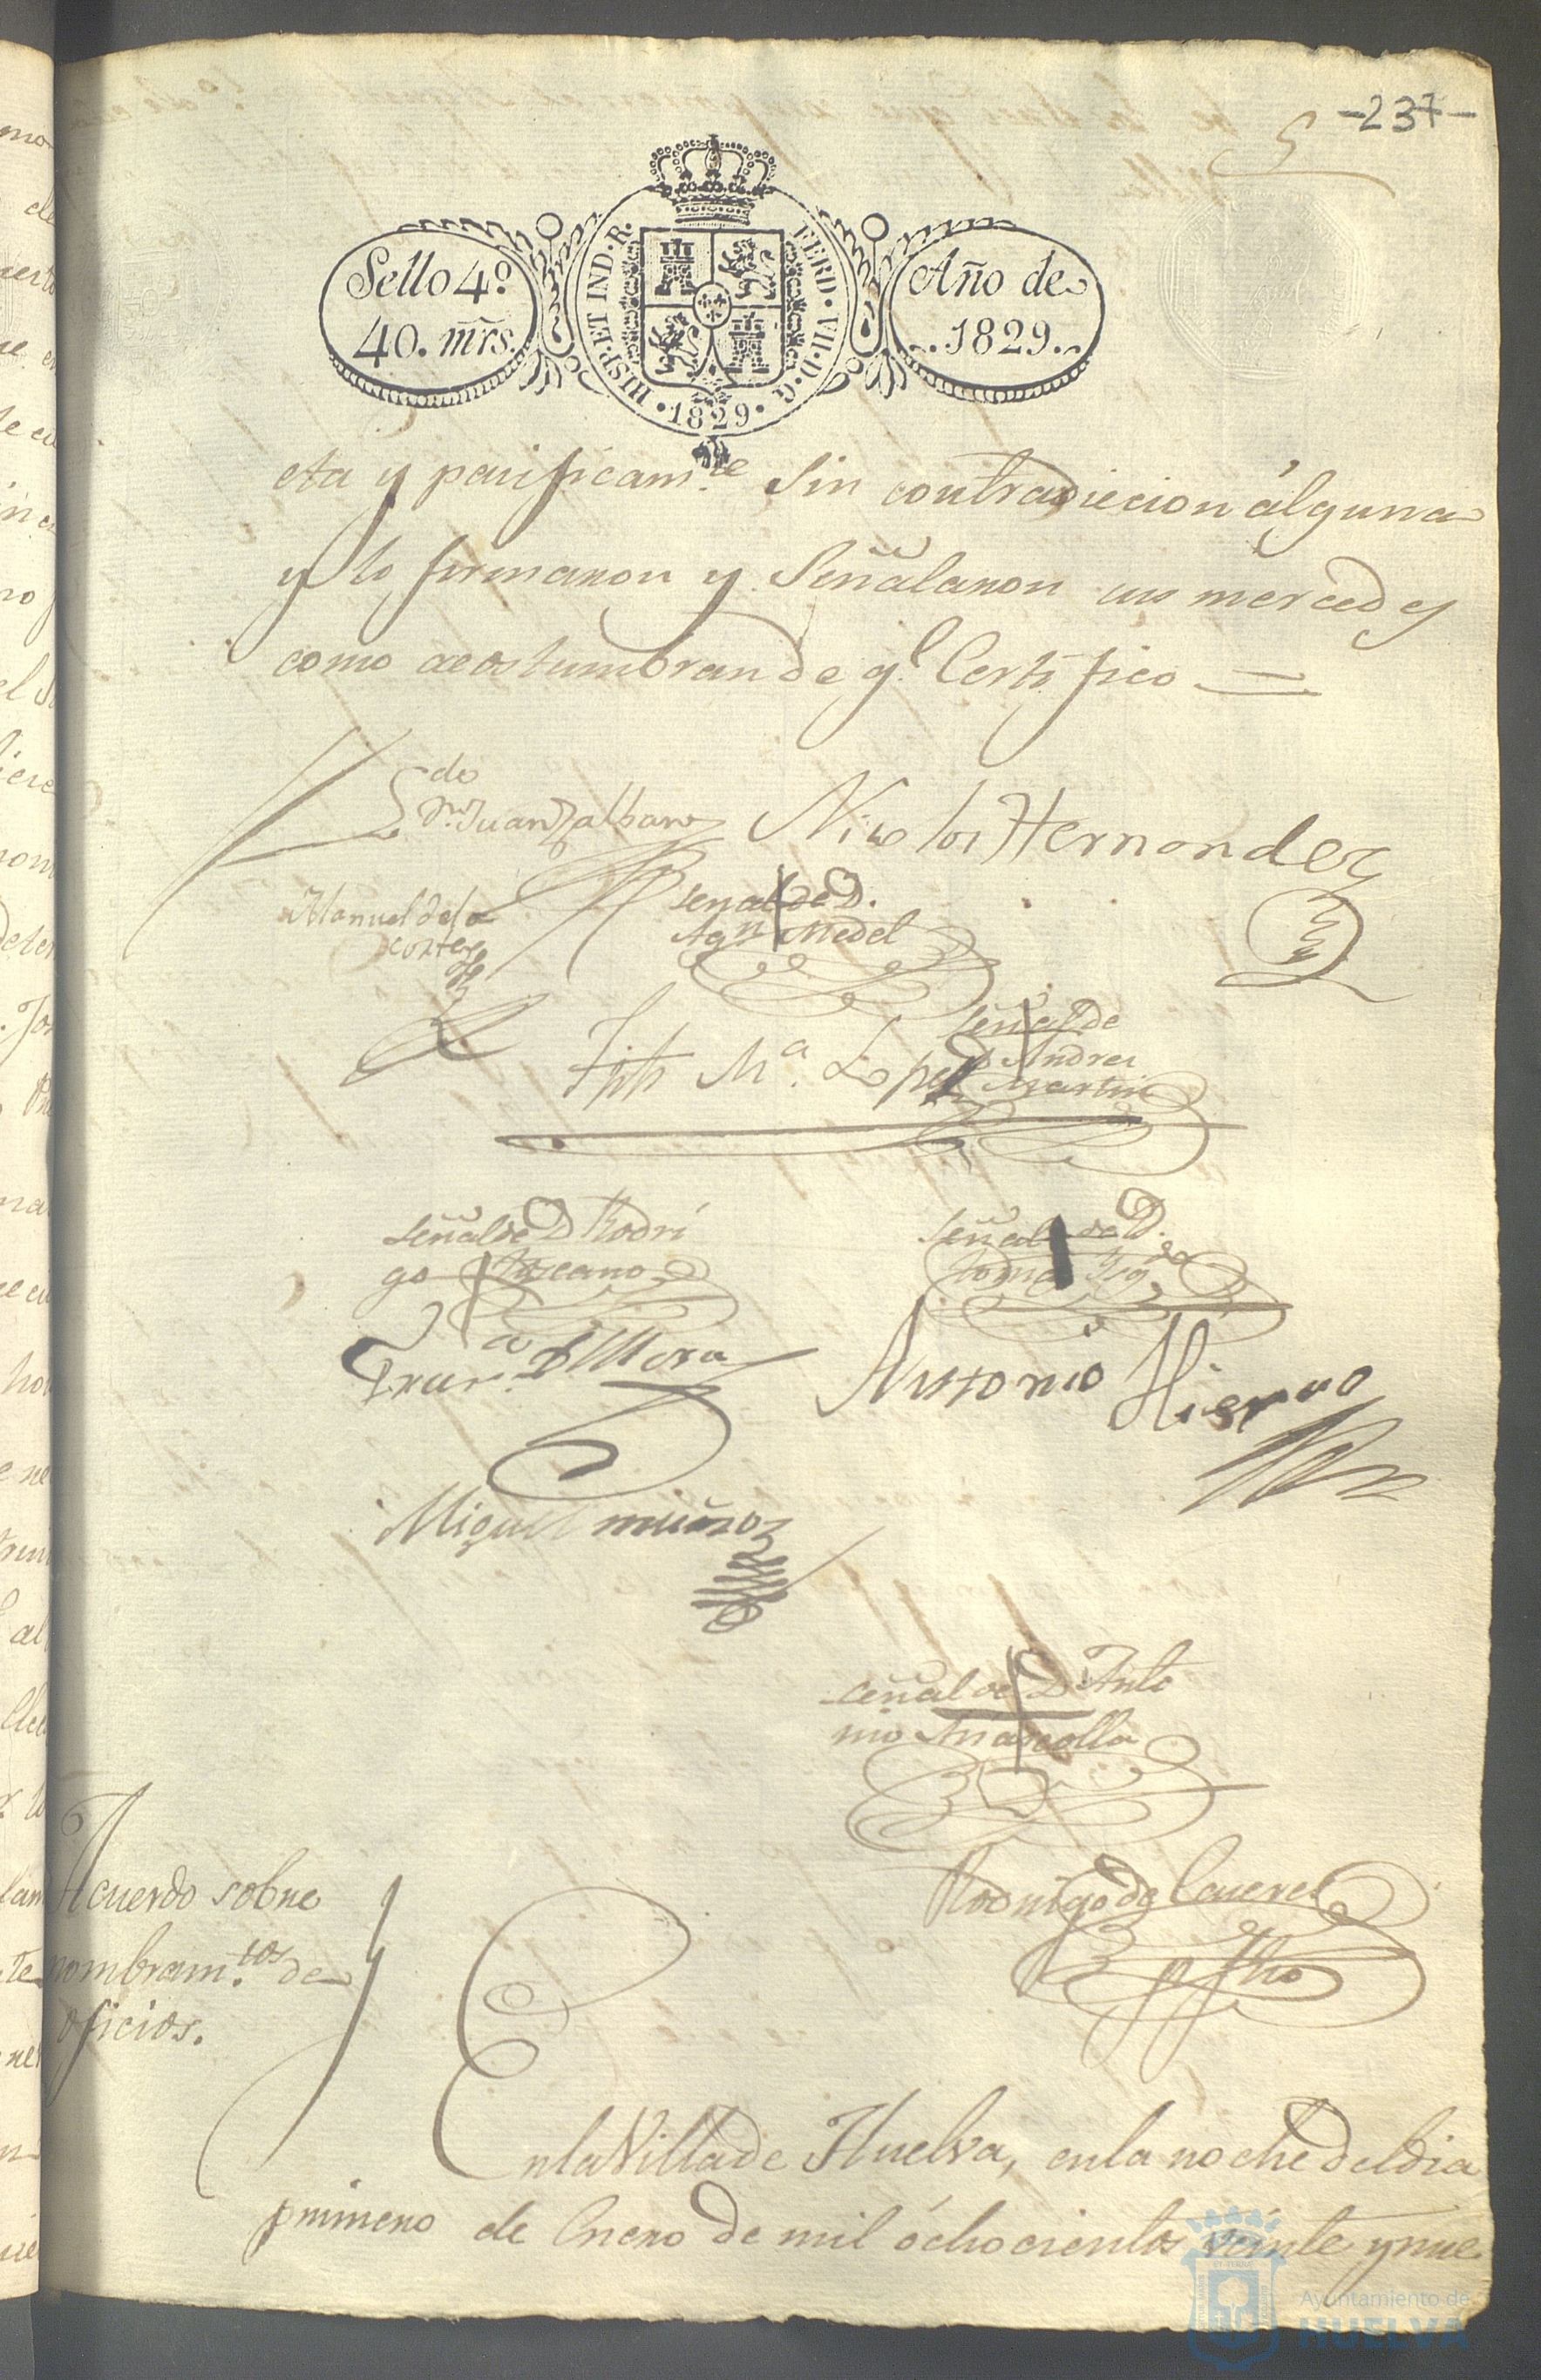 -237-
5
Sello 4º.
40. mrs.
HISP. ET IND. R.
FERD. VII. D. G.
1829
Año de
1829.
eta y pacificam.te Sin contradiccion álguna
y lo firmaron y Señalaron sus mercedes
como acostumbran de q.e Certifico =
Ldo
Dn. Juan
Nicolas Hernandez
Manuel de la
Cortes
señal de D.
Agn Medel
Ma. Lopez
Señal de
D Andres
Martin
señal de D Rodri
go Toscano
señal de D.
Franco D Mora
Antonio Hierro
Miguel muñoz
señal de D Anto
nio
Rodrigo de
Acuerdo sobre
nombram.tos de
oficios.
En la Villa de Huelva, en la noche del dia
primero de Enero de mil óchocientos veinte y nue
Ayuntamiento de
HUELVA